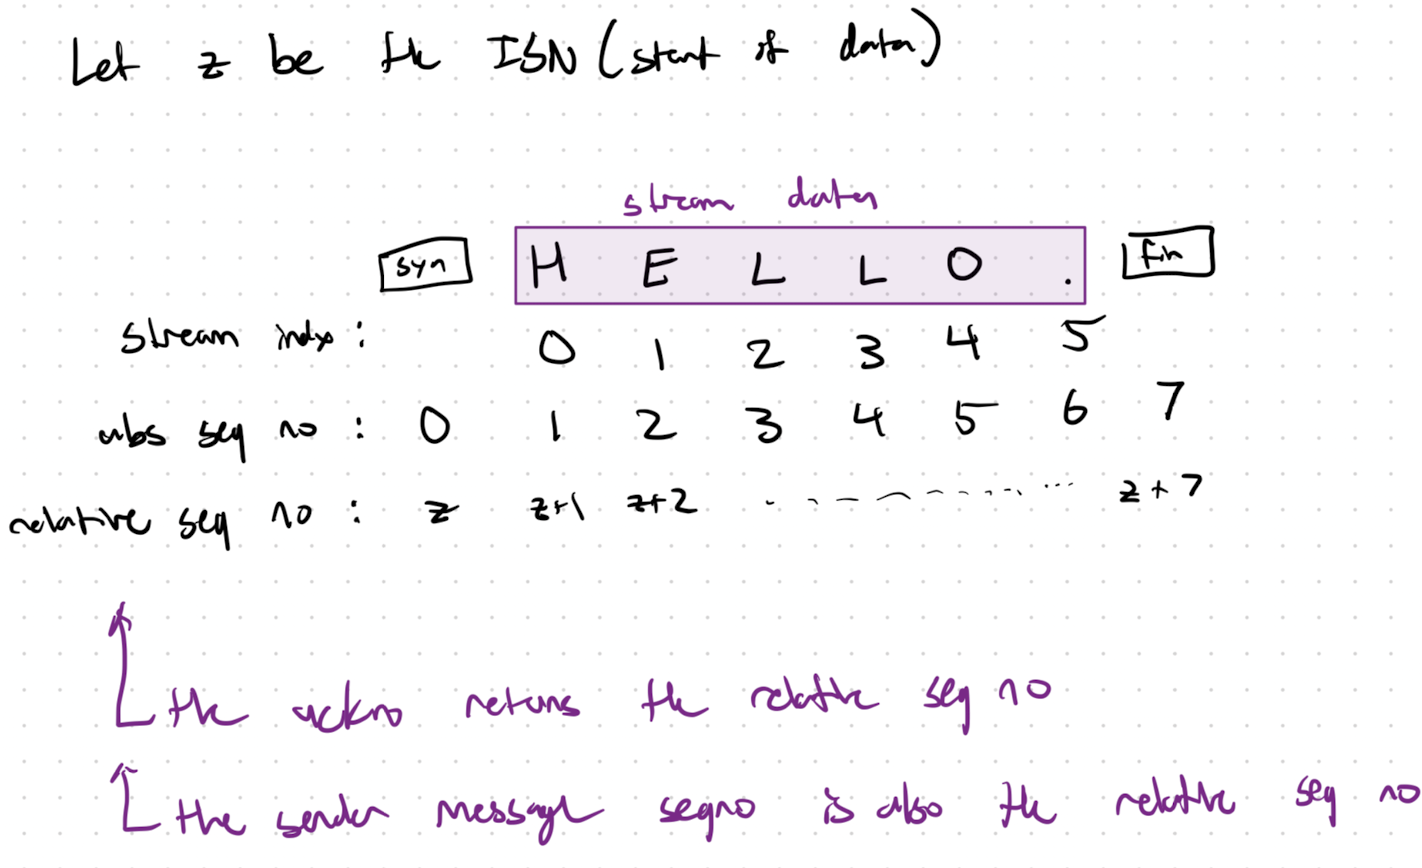 Let z be the ISN (start of data)
stream data
syn H E L L O . fin
stream indx : 0 1 2 3 4 5
abs seq no : 0 1 2 3 4 5 6 7
relative seq no : z z+1 z+2 . - - - - - - ... z+7
the ackno returns the relative seq no
the sender message seqno is also the relative seq no